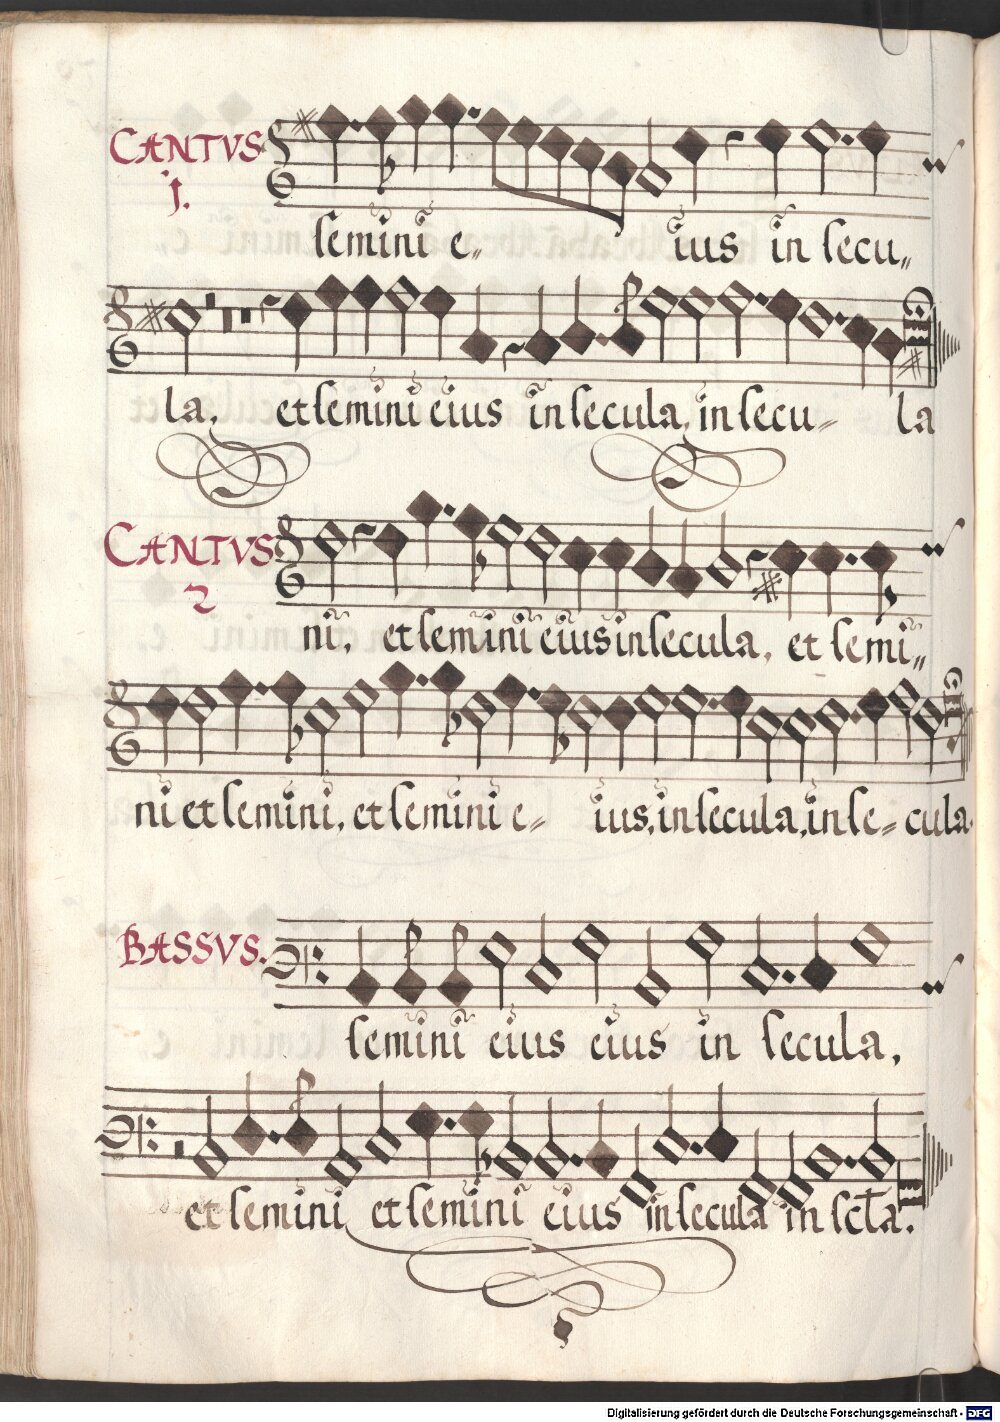 CANTVS
1.
semini e„ ius in secu„
la, et semini eius in secula, in secu„ la
CANTVS
2
ni, et semini eius in secula, et semi„
ni et semini, et semini e„ ius, in secula, in se„ cula.
BASSVS.
semini eius eius in secula,
et semini et semini eius in secula in scła.
Digitalisierung gefördert durch die Deutsche Forschungsgemeinschaft - DFG